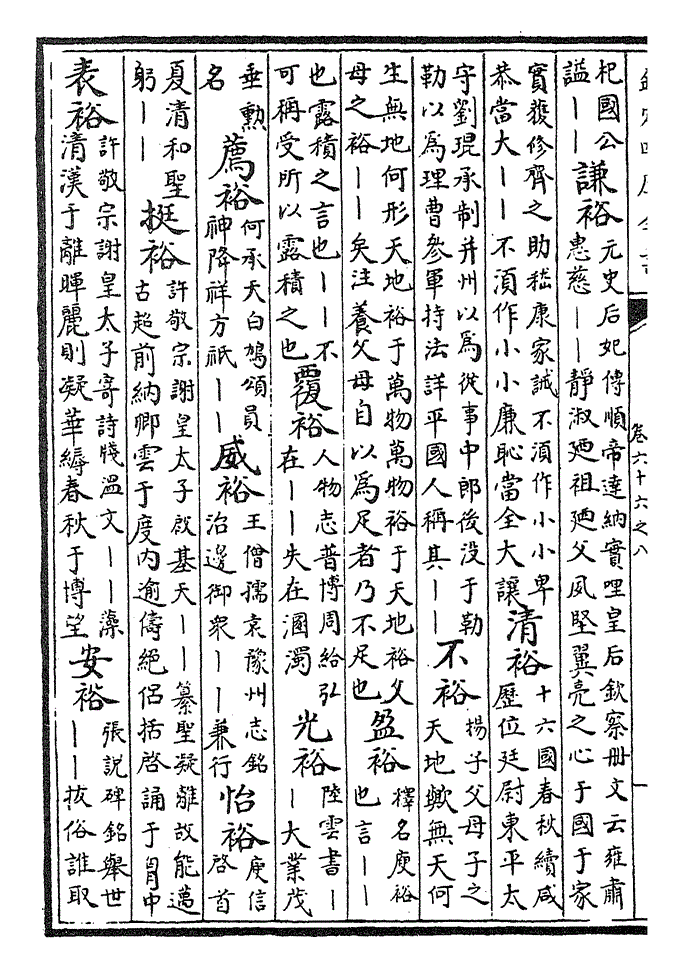 杞國公
諡——
謙裕
元史后妃傳順帝達納實哩皇后欽察册文云雍肅
惠慈——靜淑廼祖廼父夙堅翼亮之心于國于家
實䕶修齊之助嵇康家誡不須作小小卑
恭當大——不須作小小廉恥當全大讓
清裕
十六國春秋續咸
歷位廷尉東平太
守劉琨承制并州以為從事中郎後没于勒
勒以為理曹參軍持法詳平國人稱其——
不裕
揚子父母子之
天地歟無天何
生無地何形天地裕于萬物萬物裕于天地裕父
母之裕——矣注養父母自以為足者乃不足也
盈裕
釋名庾裕
也言——
也露積之言也——不
可稱受所以露積之也
覆裕
人物志普博周給弘
在——失在溷濁
光裕
陸雲書—
—大業茂
垂勲
名
薦裕
何承天白鳩頌員
神降祥方祇——
威裕
王僧孺袁豫州志銘
治邊御衆——兼行
怡裕
庾信
啓首
夏清和聖
躬——
挺裕
許敬宗謝皇太子啟基天——纂聖凝離故能邁
古超前納卿雲于度内逾儔絕侶括啓誦于胷中
表裕
許敬宗謝皇太子寄詩牋温文——藻
清漢于離暉麗則凝華縟春秋于博望
安裕
張説碑銘舉世
——拔俗誰取
卷六十六之八